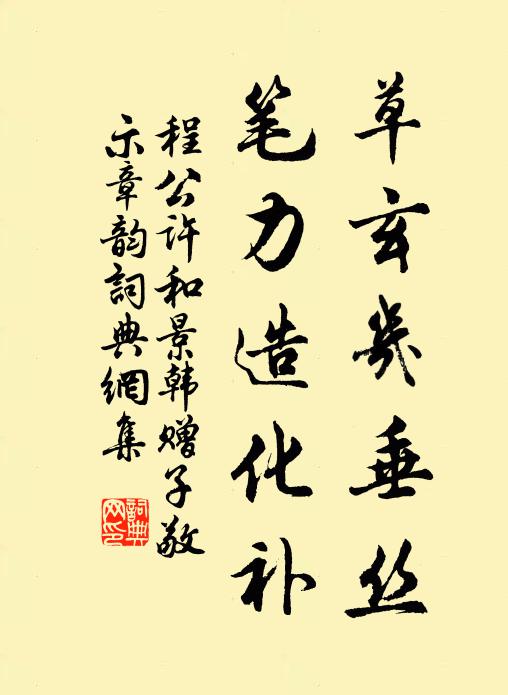 草玄几垂丝
笔力造化补
程公许和景韩赠子敬
示章韵詞典網集
詞典网印